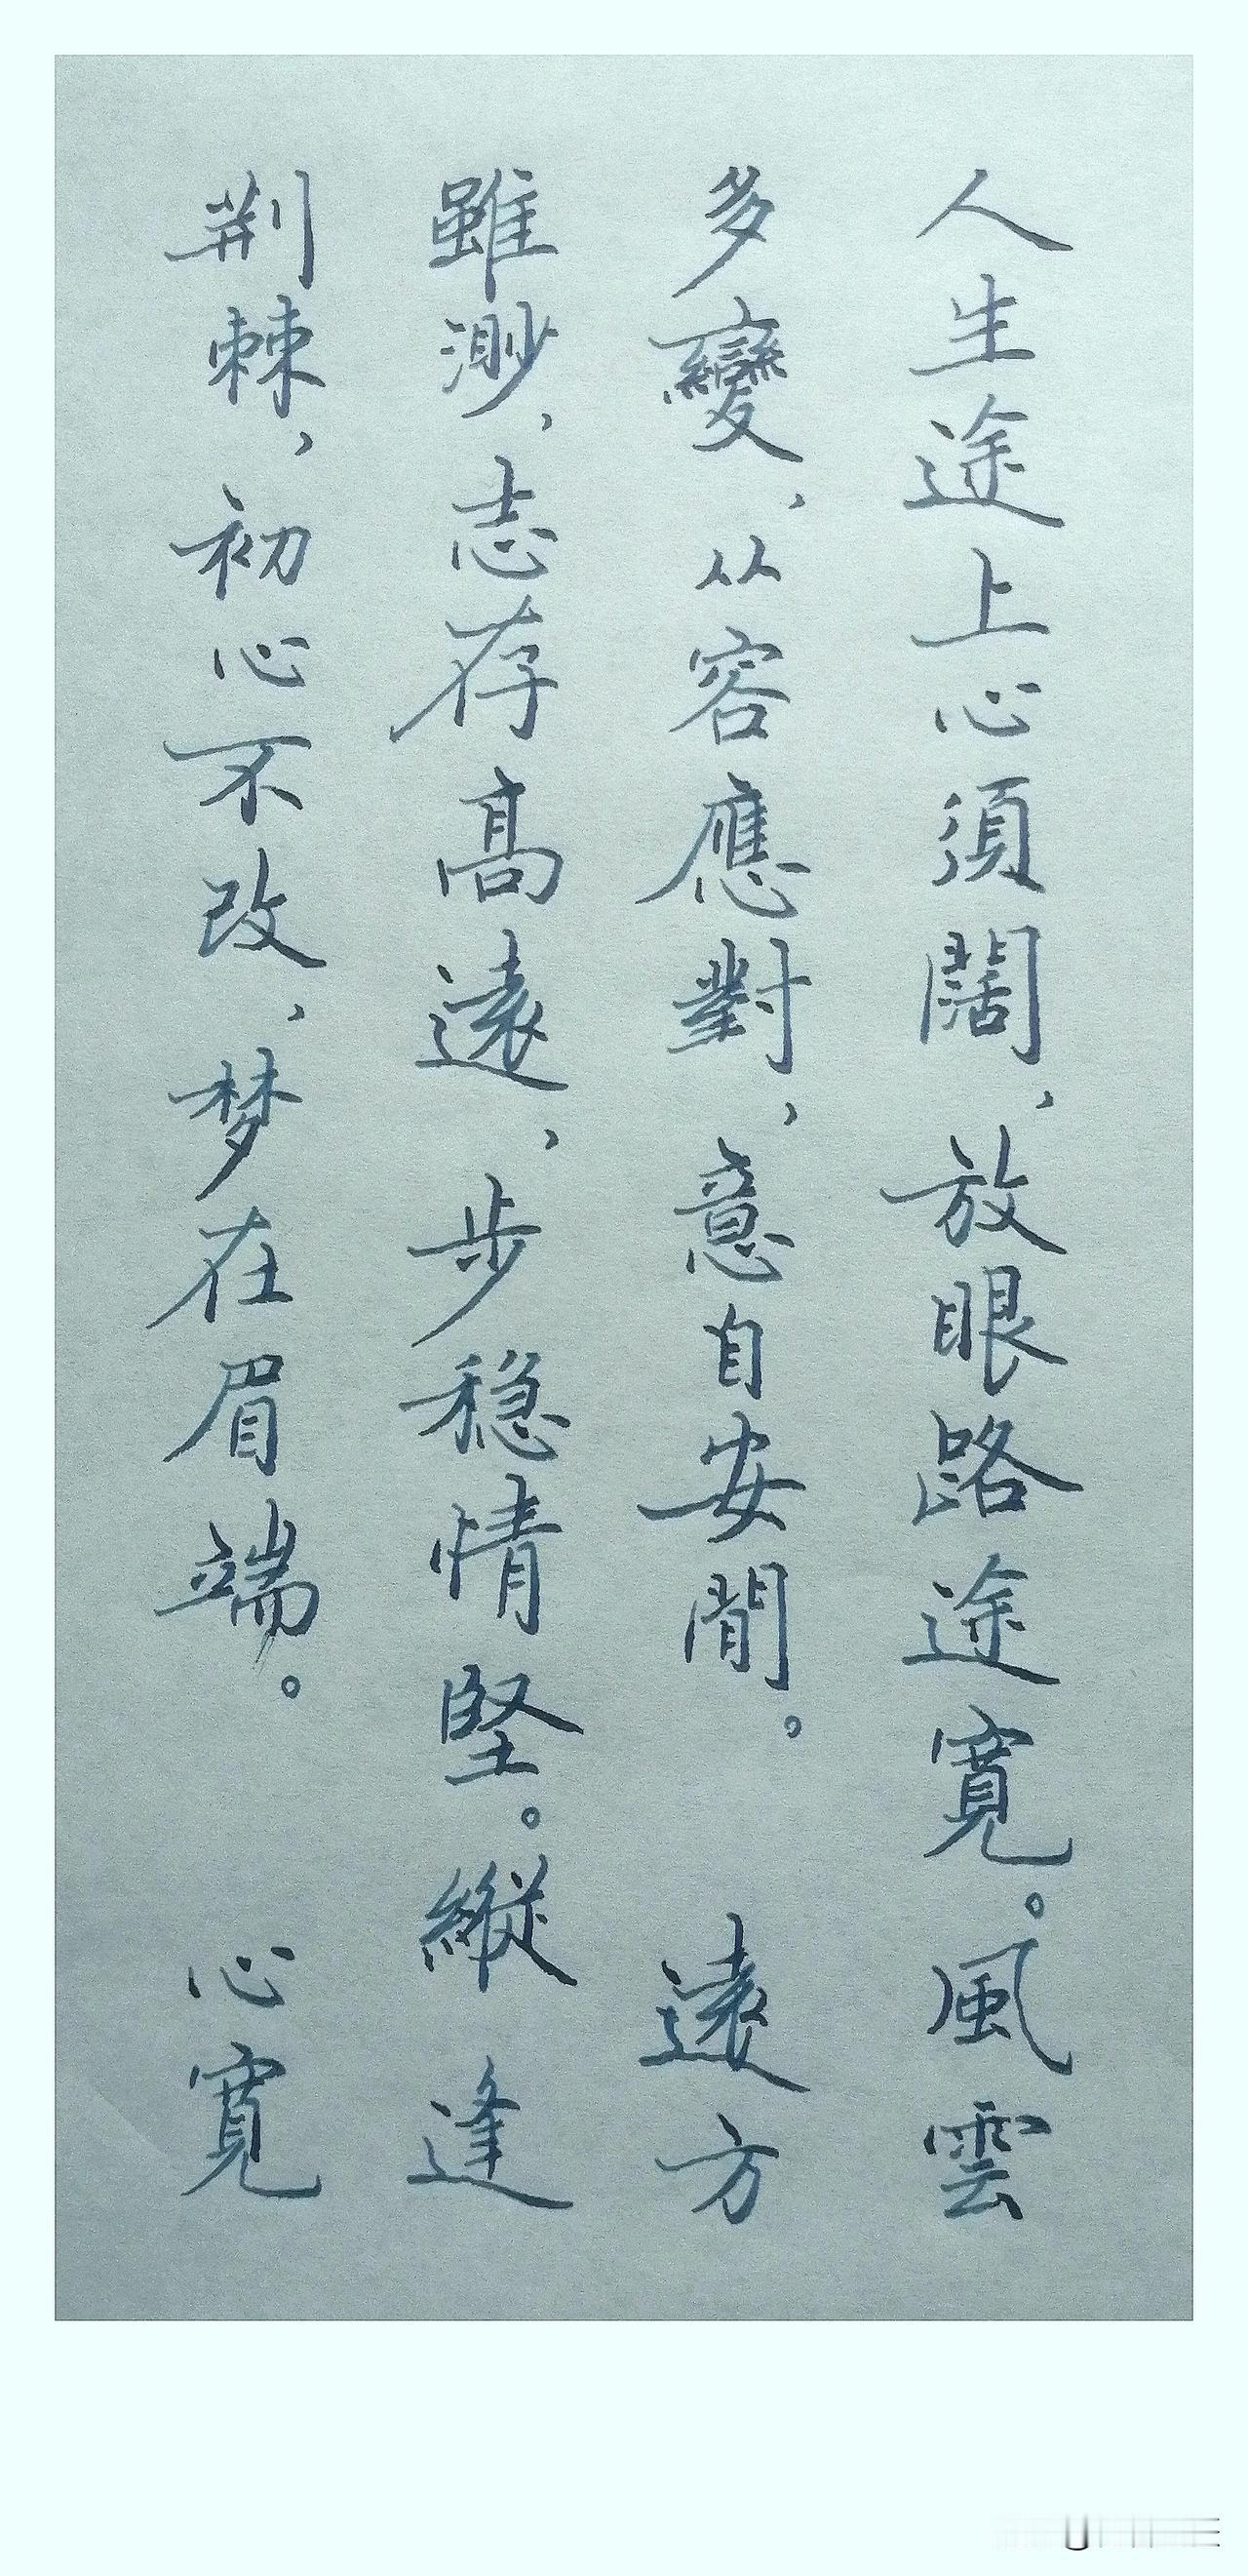 人生途上心須闊，放眼路途寬。風雲
多變，从容應對，意自安閒。 遠方
雖渺，志存高遠，步稳情堅。縱逢
荆棘，初心不改，梦在眉端。 心寬